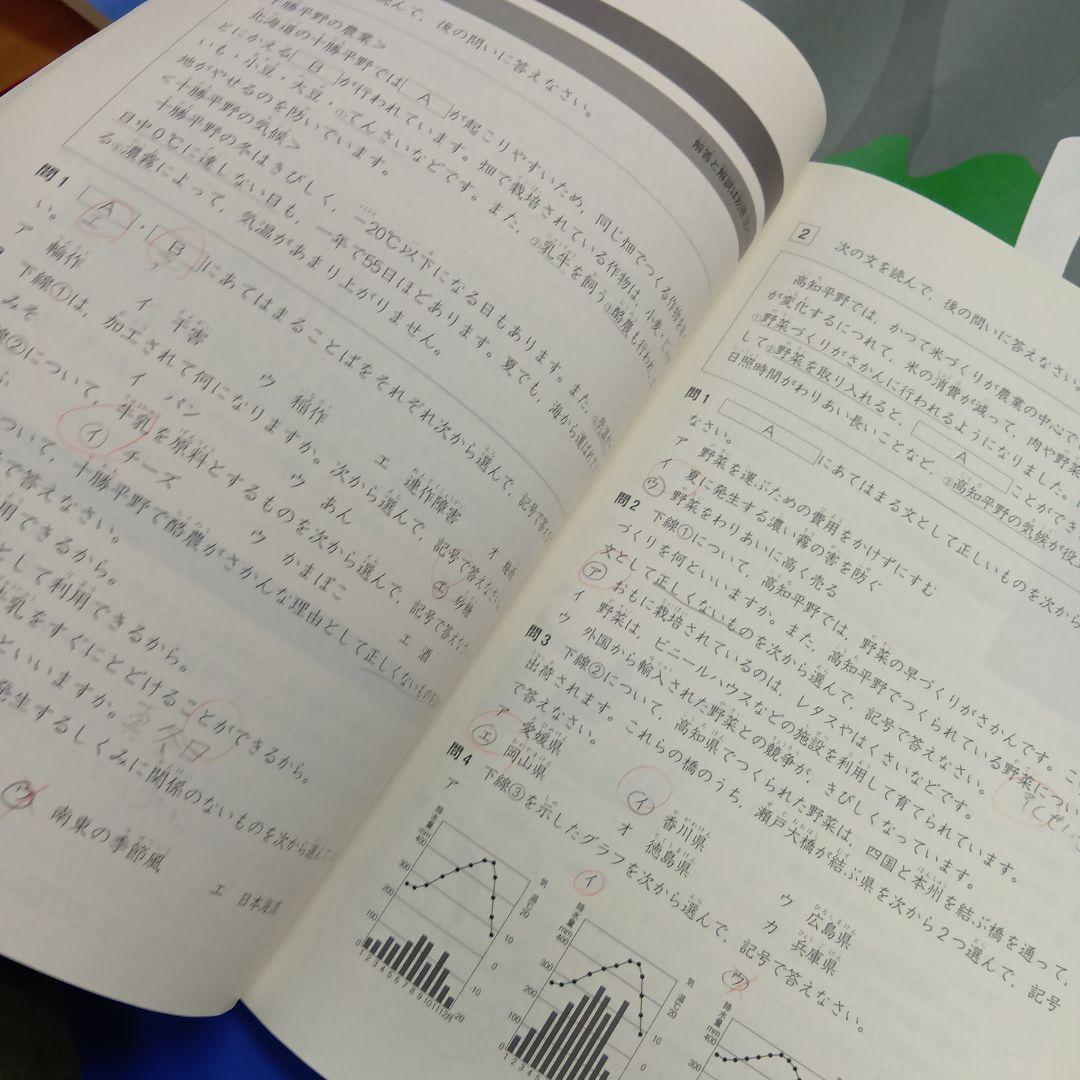 読んで、後の問いに答えなさい。
十勝平野の農業＞
北海道の十勝平野では A が起こりやすいため、同じ畑でつくる作物を
とにかえる B が行われています。畑で栽培されている作物は、小麦・じゃ
いも・小豆・大豆・①てんさいなどです。また、②乳牛を飼う③酪農も行われ
地がやせるのを防いでいます。
＜十勝平野の気候＞
十勝平野の冬はきびしく、－20℃以下になる日もあります。また、
日中0℃に達しない日も、一年で55日ほどあります。夏でも、海から運ばれて
る 濃霧によって、気温があまり上がりません。
問1 A ・ B にあてはまることばをそれぞれ次から選んで、記号で答え
い。
エ ア
ア 輪作 イ 干害 ウ 稲作 エ 連作障害 オ
下線①は、加工されて何になりますか。次から選んで、記号で答えなさい。
みそ イ パン ウ あん エ 砂糖
線②について、牛乳を原料とするものを次から選んで、記号で答えなさい
ふ イ チーズ ウ かまぼこ エ 酒
ついて、十勝平野で酪農がさかんな理由として正しくないものを
で答えなさい。
用できるから。
として利用できるから。
牛乳をすぐにとどけることができるから。
といいますか。
発生するしくみに関係のないものを次から選んで
ウ 南東の季節風
エ 日本海流
解答と解説は別冊
2 次の文を読んで、後の問いに答えなさい
高知平野では、かつて米づくりが農業の中心で
が変化するにつれて、米の消費が減って、肉や野菜
①野菜づくりがさかんに行われるようになりました。
して②野菜を取り入れると、 A ことができ
日照時間がわりあい長いことなど、③高知平野の気候が役立
問1 A にあてはまる文として正しいものを次から
なさい。
ア 野菜を運ぶための費用をかけずにすむ
イ 夏に発生する濃い霧の害を防ぐ
ウ 野菜をわりあいに高く売る
問2 下線①について、高知平野では、野菜の早づくりがさかんです。こ
づくりを何といいますか。また、高知平野でつくられている野菜につい
文として正しくないものを次から選んで、記号で答えなさい。
ア おもに栽培されているのは、レタスやはくさいなどです。
イ 野菜は、ビニールハウスなどの施設を利用して育てられています。
ウ 外国から輸入された野菜との競争が、きびしくなっています。
問3 下線②について、高知県でつくられた野菜は、四国と本州を結ぶ橋を通って、
出荷されます。これらの橋のうち、瀬戸大橋が結ぶ県を次から2つ選んで、記号
で答えなさい。
ア 愛媛県 イ 香川県 ウ 広島県
エ 岡山県 オ 徳島県 カ 兵庫県
問4 下線③を示したグラフを次から選んで、記号で答えなさい。
ア イ ウ
降水量 mm 400 300 200 100 0
気温 ℃ 20 10 0 -10 -20
1 2 3 4 5 6 7 8 9 10 11 12月
降水量 mm 400 300 200 100 0
気温 ℃ 20 10 0
1 2 3 4 5 6 7 8
降水量 mm 400 300